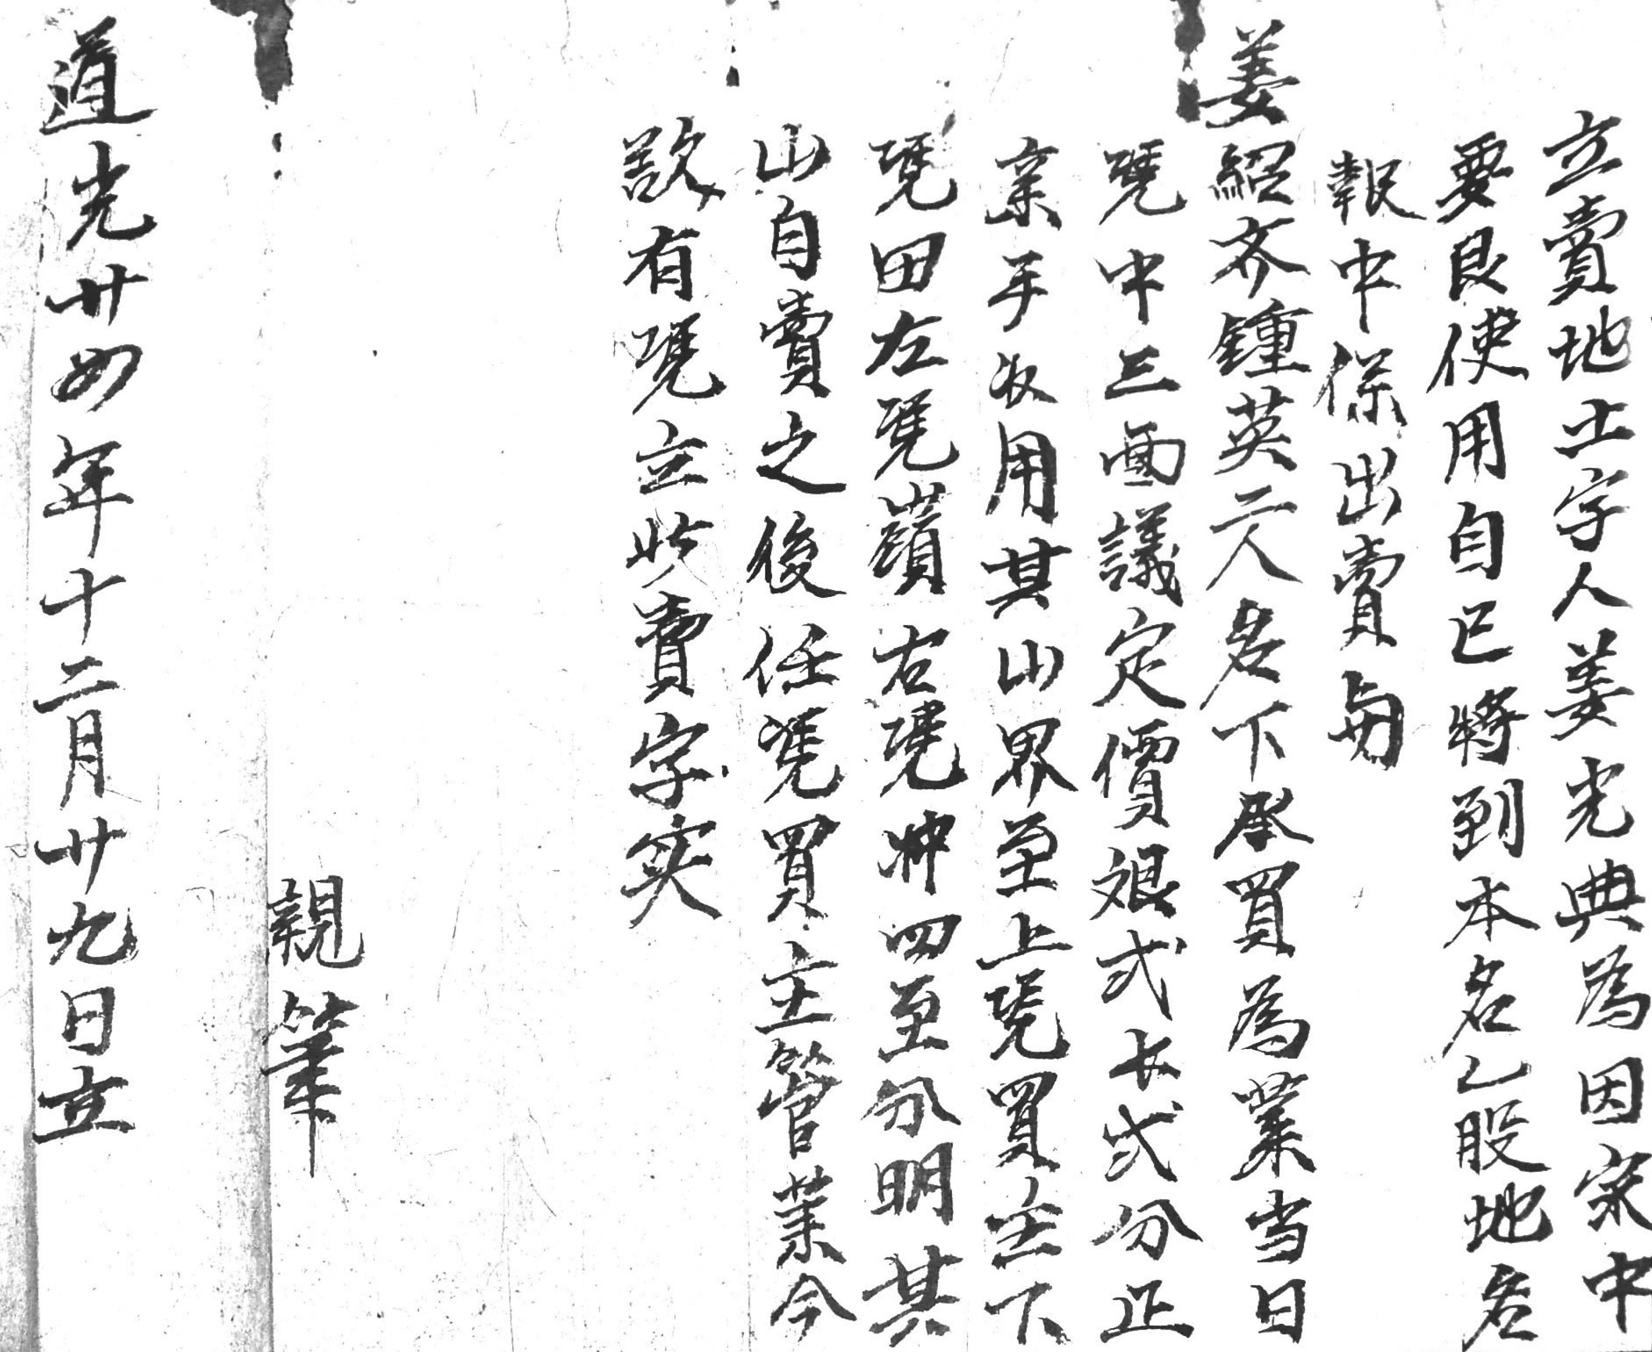 立賣地土字人姜光典為因家中
要艮使用自己将到本名乙股地名
報中傑出賣与
姜紹齐鍾英二人名下承買為業当日
凴中三面議定價娘弍长弍分正
亲手收用其山界至上凴買主下
凴田左凴嶺右凴冲四至分明其
山自賣之後任凴買主管業今
欲有凴立此賣字实
親筆
道光廿四年十二月廿九日立